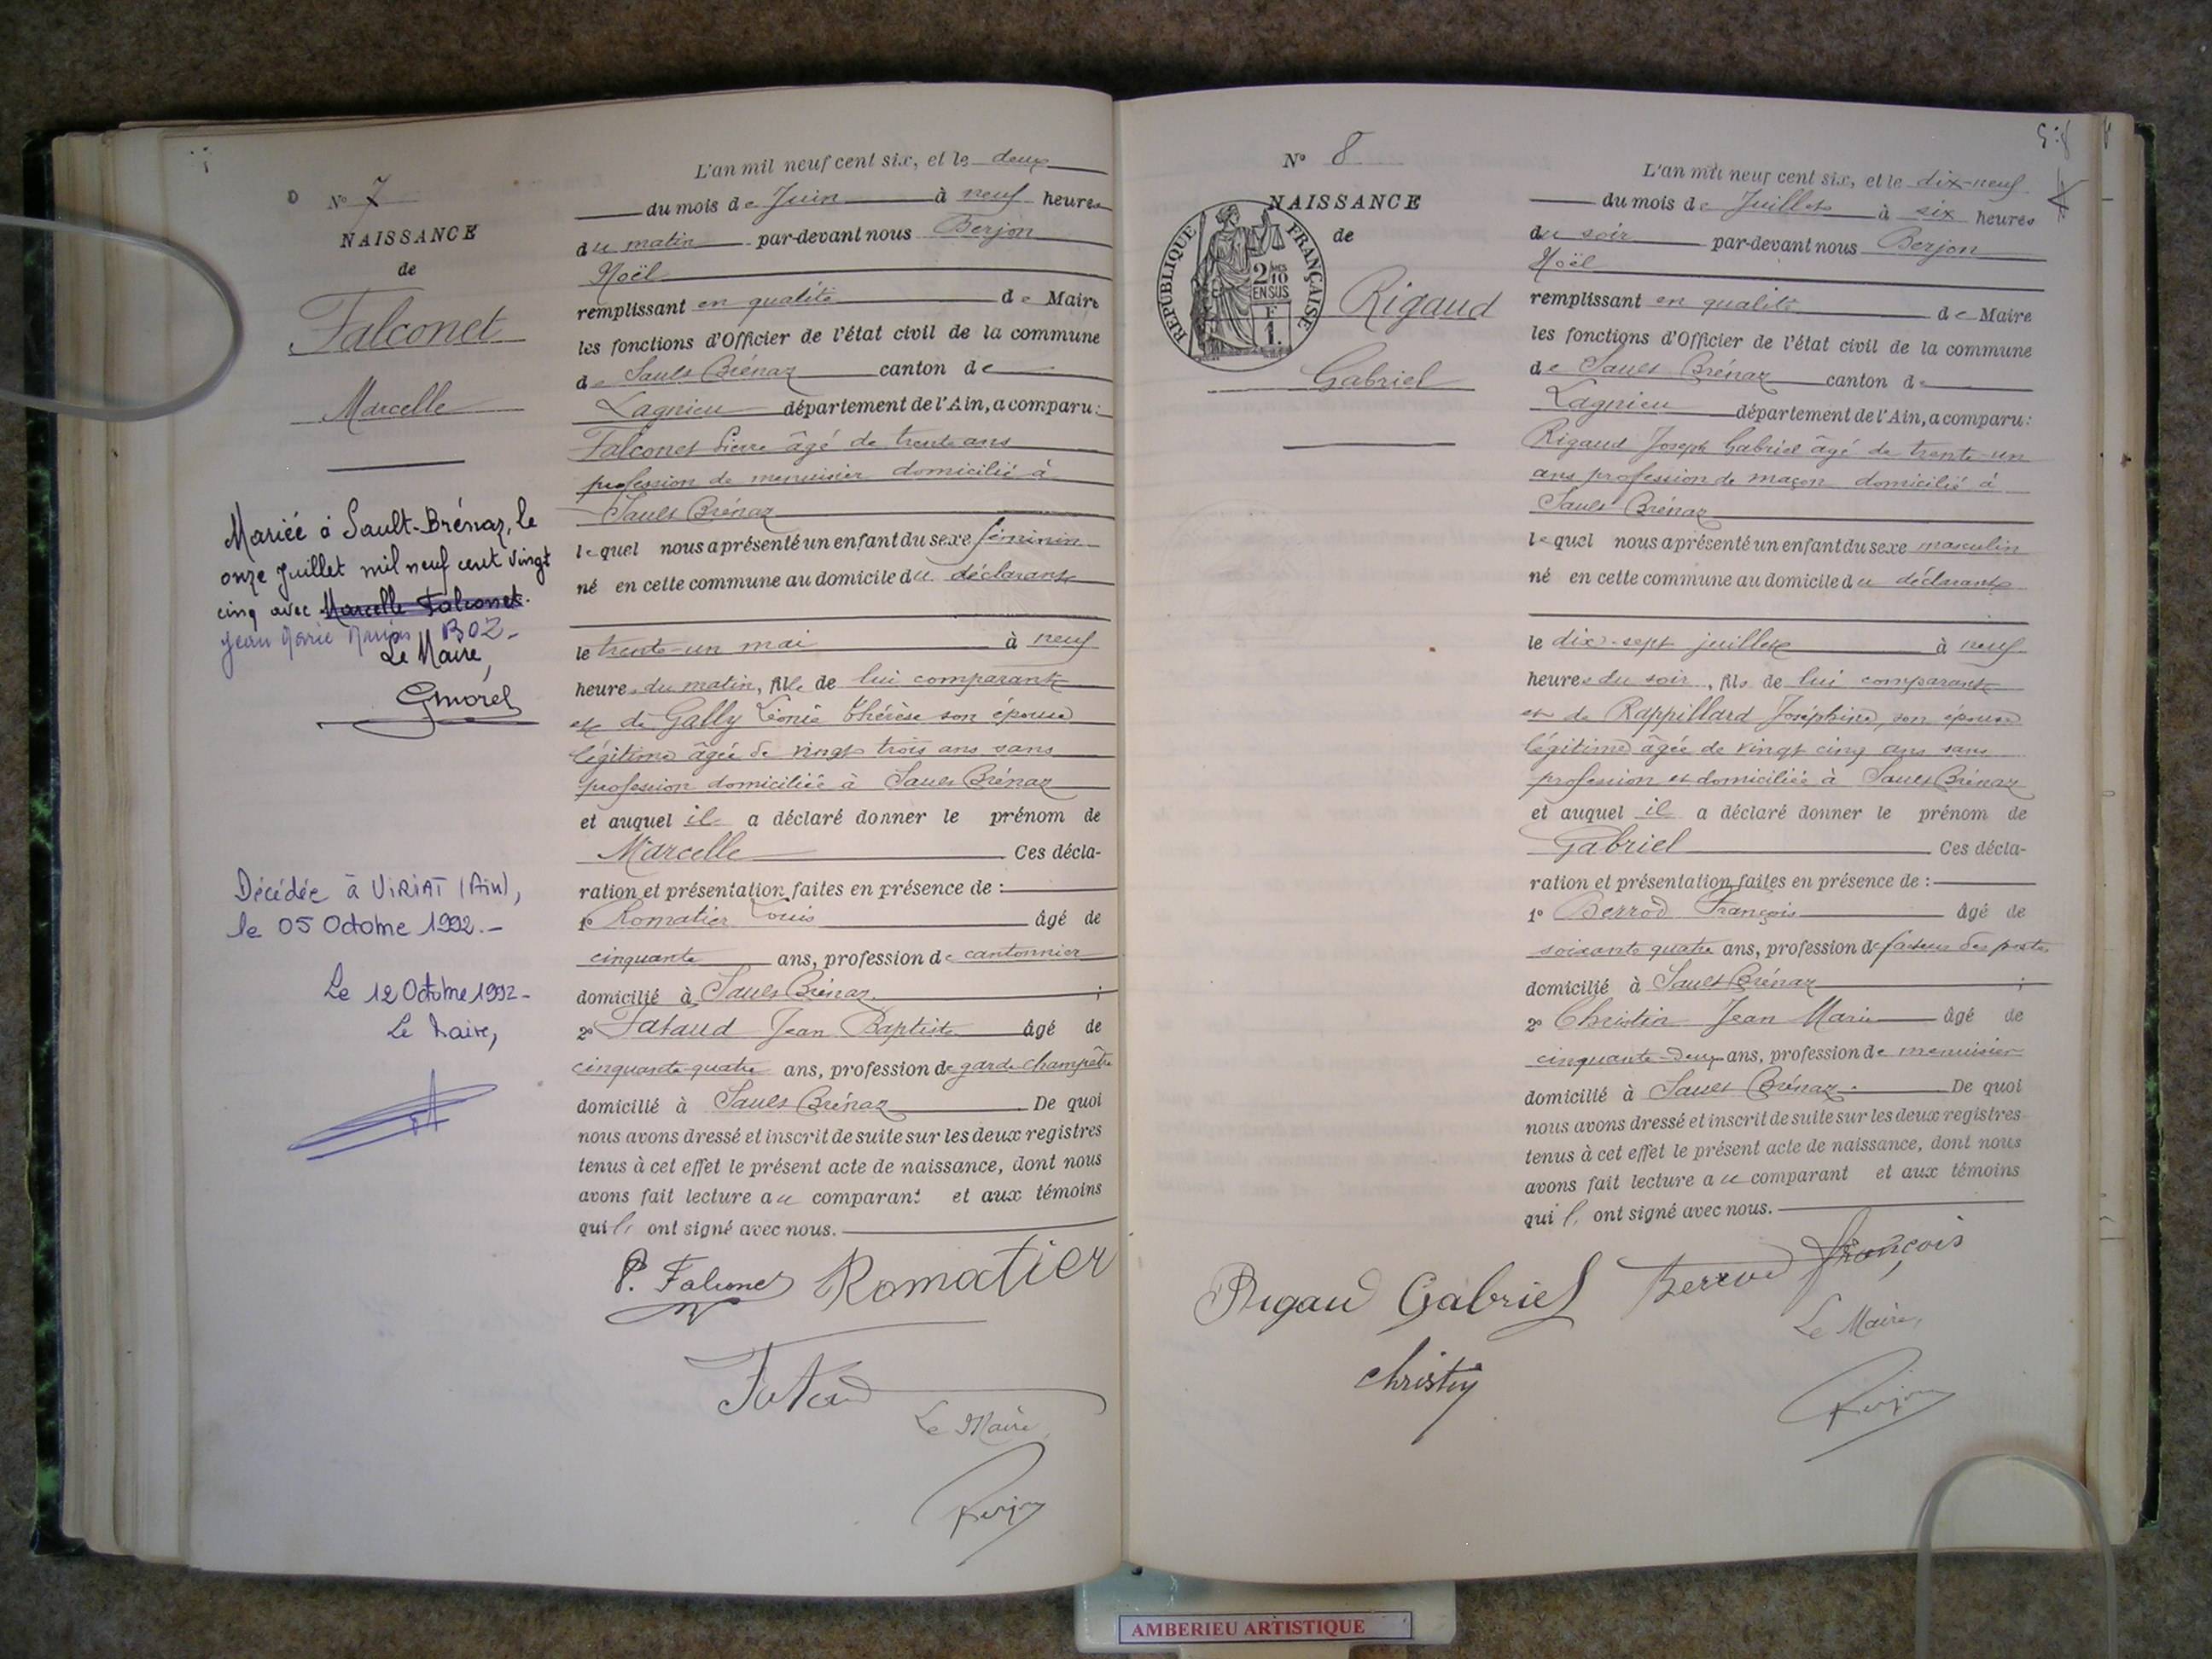 D N° 7
NAISSANCE
de
Falconet
Marcelle
Mariée à Sault-Brénaz, le
onze Juillet mil neuf cent vingt
cinq avec Marcelle Falconet.
Jean Marie BOZ-
Le Maire,
GMorel
Décédée à VIRIAT (Ain),
le 05 Octobre 1992.-
Le 12 Octobre 1992-
Le Maire,
L'an mil neuf cent six, et le deux
du mois de Juin à neuf heures
du matin par-devant nous Berjon
Noël
remplissant en qualité de Maire
les fonctions d'Officier de l'état civil de la commune
de Sault Brénaz canton de
Lagnieu département de l'Ain, a comparu:
Falconet Pierre âgé de trente ans
profession de menuisier domicilié à
Sault Brénaz
lequel nous a présenté un enfant du sexe féminin
né en cette commune au domicile du déclarant
le trente-un mai à neuf
heures du matin, fille de lui comparant
et de Gally Léonie Thérèse son épouse
légitime âgée de vingt trois ans sans
profession domiciliée à Sault Brénaz
et auquel il a déclaré donner le prénom de
Marcelle Ces décla-
ration et présentation faites en présence de :
1° Romatier Louis âgé de
cinquante ans, profession de cantonnier
domicilié à Sault Brénaz ;
2° Fataud Jean Baptiste âgé de
cinquante quatre ans, profession de garde champêtre
domicilié à Sault Brénaz De quoi
nous avons dressé et inscrit de suite sur les deux registres
tenus à cet effet le présent acte de naissance, dont nous
avons fait lecture au comparant et aux témoins
qui ls ont signé avec nous.
P. Falconet Romatier
Fataud
Le Maire,
Berjon
N° 8
NAISSANCE
de
REPUBLIQUE FRANÇAISE
2/10
EN SUS
F
1.
Rigaud
Gabriel
L'an mil neuf cent six, et le dix-neuf
du mois de Juillet à six heures
du soir par-devant nous Berjon
Noël
remplissant en qualité de Maire
les fonctions d'Officier de l'état civil de la commune
de Sault Brénaz canton de
Lagnieu département de l'Ain, a comparu:
Rigaud Joseph Gabriel âgé de trente-un
ans profession de maçon domicilié à
Sault Brénaz
lequel nous a présenté un enfant du sexe masculin
né en cette commune au domicile du déclarant
le dix-sept juillet à neuf
heures du soir, fils de lui comparant
et de Rappillard Joséphine, son épouse
légitime âgée de vingt cinq ans sans
profession et domiciliée à Sault Brénaz
et auquel il a déclaré donner le prénom de
Gabriel Ces décla-
ration et présentation faites en présence de :
1° Berrod François âgé de
soixante quatre ans, profession de facteur des postes
domicilié à Sault Brénaz ;
2° Christin Jean Marie âgé de
cinquante-deux ans, profession de menuisier
domicilié à Sault Brénaz. De quoi
nous avons dressé et inscrit de suite sur les deux registres
tenus à cet effet le présent acte de naissance, dont nous
avons fait lecture au comparant et aux témoins
qui ls ont signé avec nous.
Rigaud Gabriel Berrod François
Le Maire,
christin
Berjon
AMBERIEU ARTISTIQUE